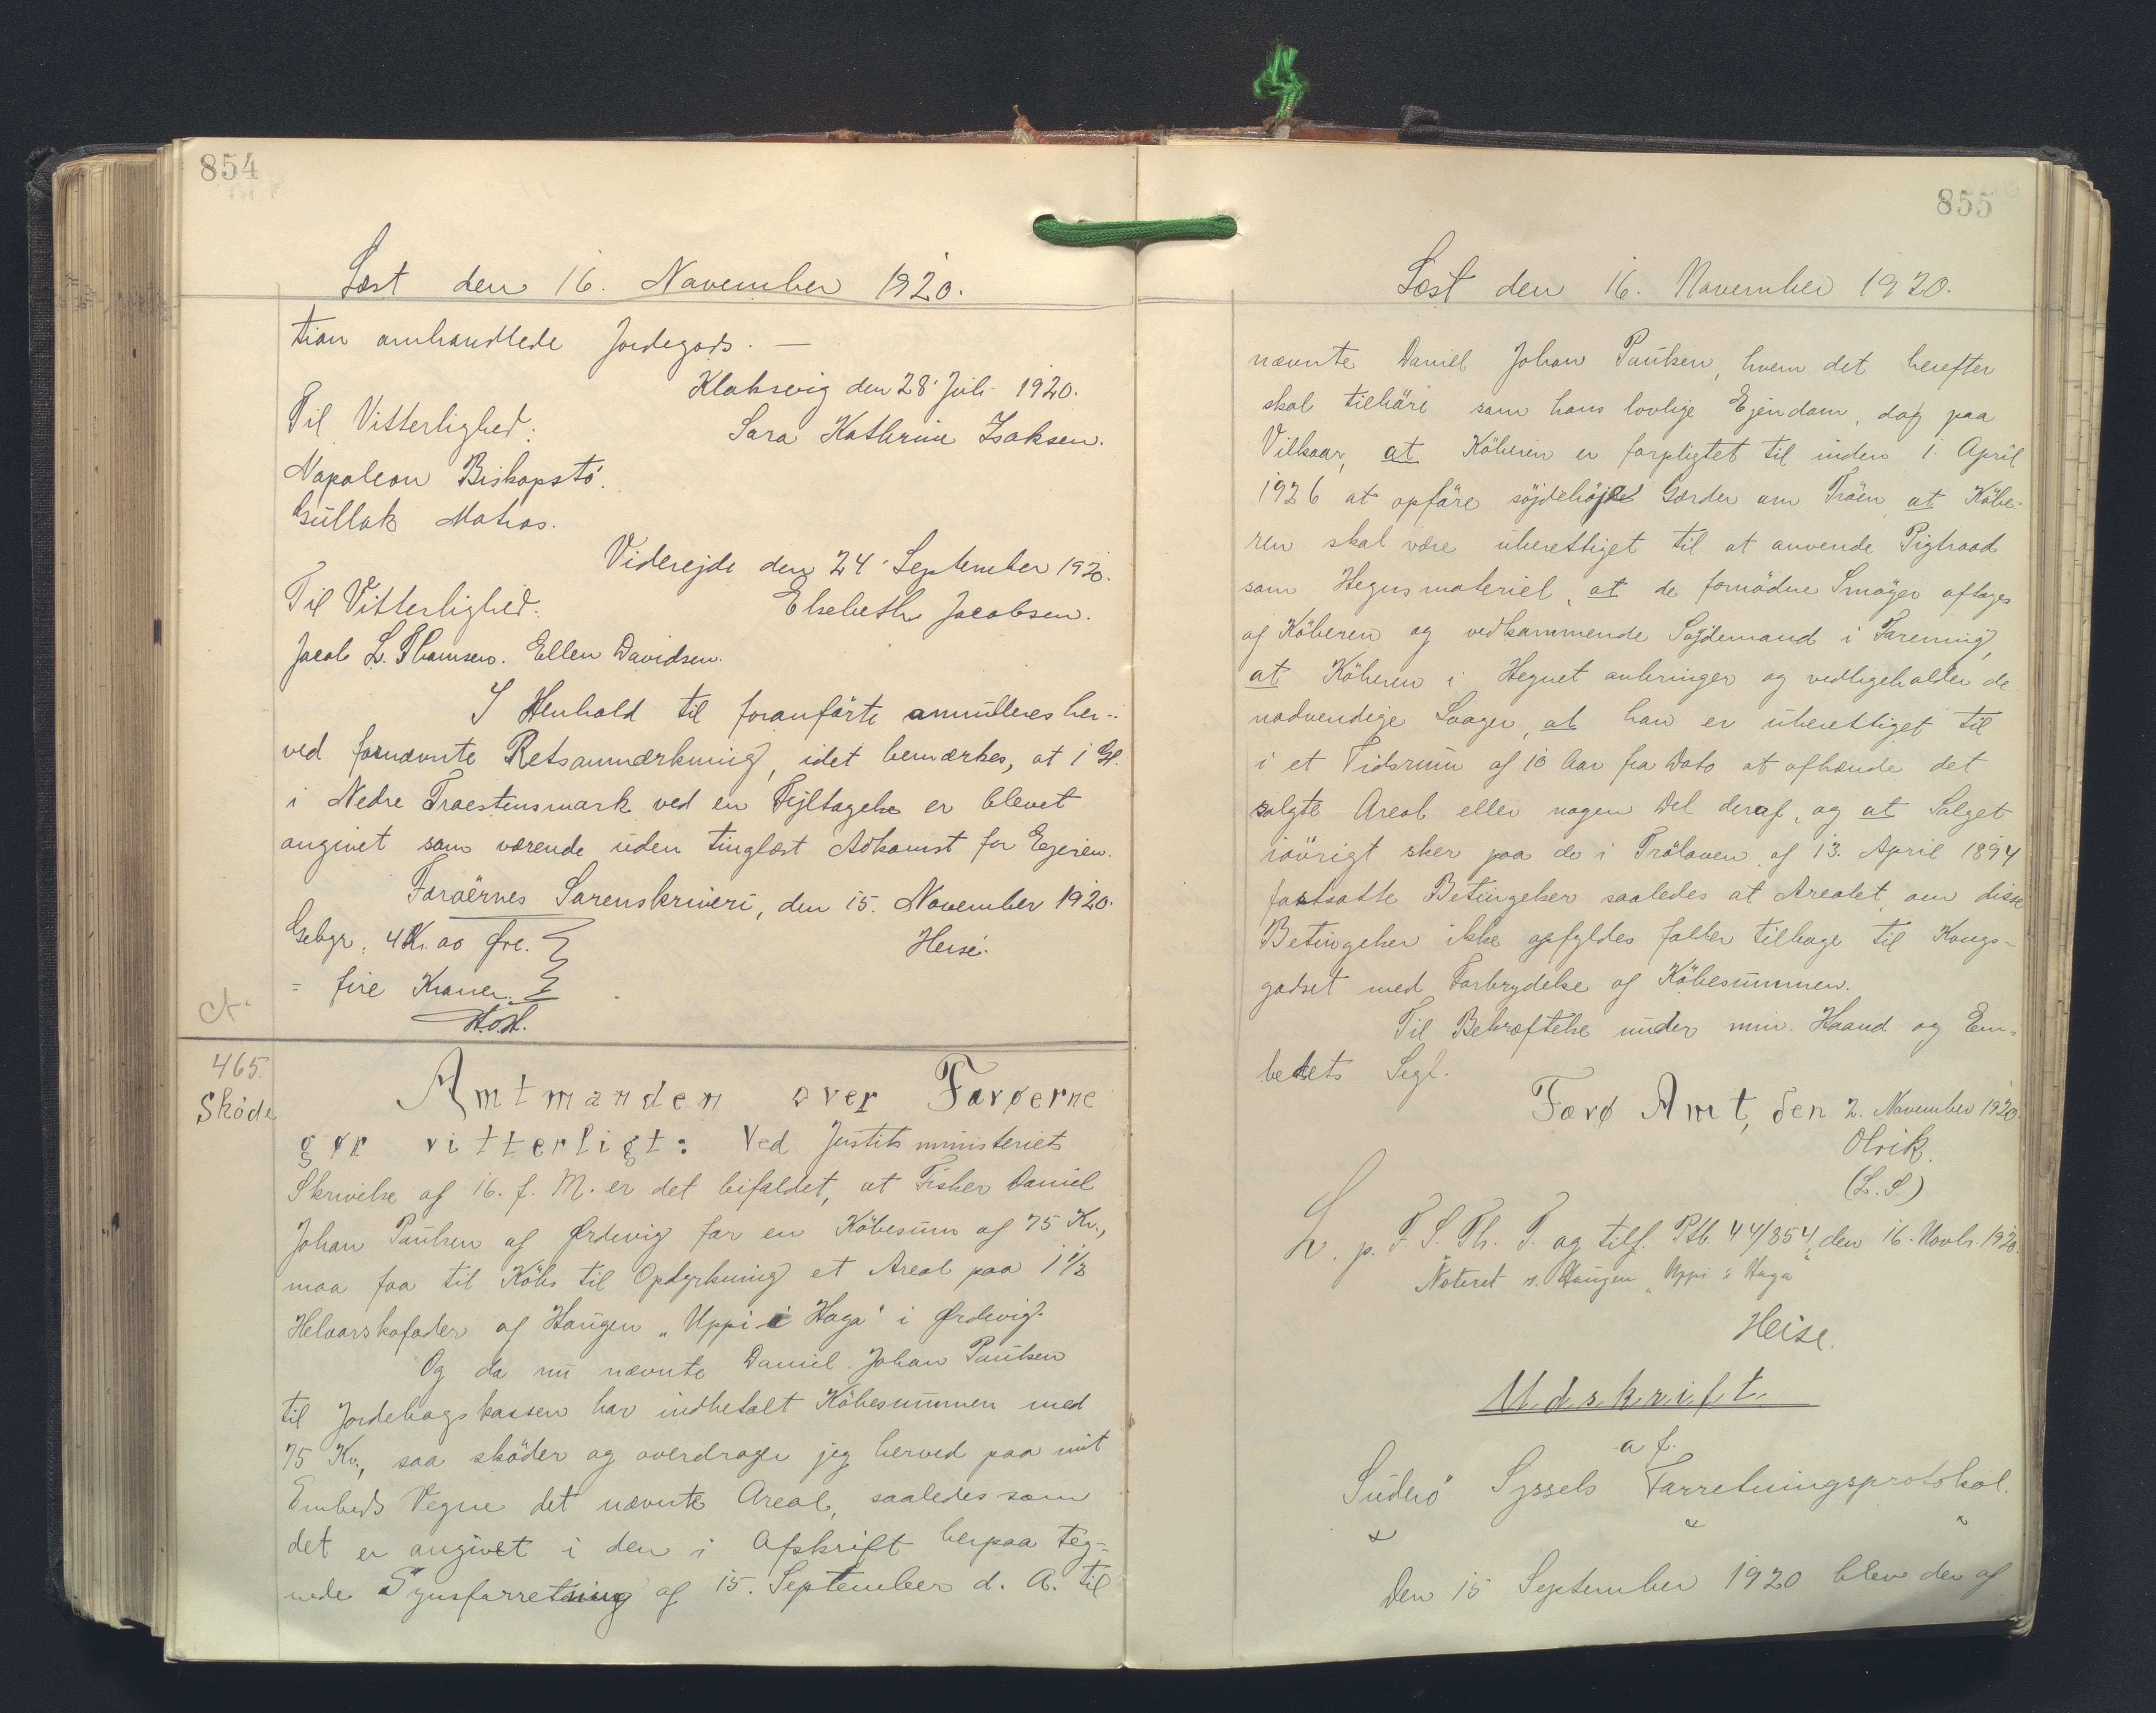 854
Læst den 16. November 1920.
tion omhandlede Jordegods. —
Klaksvig den 28' Juli 1920.
Til Vitterlighed:
Sara Kathrine Isaksen.
Napoleon Biskopstö.
Gullak Matras.
Viderejde den 24' September 1920.
Til Vitterlighed:
Elsebeth Jacobsen.
Jacob L. Thomsen. Ellen Davidsen.
I Henhold til foranførte annulleres her-
ved fornævnte Retsanmærkning, idet bemærkes, at 1 Gl.
i Nedre Traestensmark ved en Fejltagelse er blevet
angivet som værende uden tinglæst Adkomst for Ejeren.
Færøernes Sorenskriveri, den 15. November 1920.
Gebyr: 4 Kr. 00 Øre.
Heise.
= fire Kroner.
H.o.H.
465.
Skøde
Amtmanden over Færøerne
gør vitterligt: Ved Justitsministeriets
Skrivelse af 16. f. M. er det bifaldet, at Fisker Daniel
Johan Paulsen af Ørdevig for en Købesum af 75 Kr.,
maa faa til Købs til Opdyrkning et Areal paa 1 1/2
Helaarskofoder af Haugen „Uppi i Haga" i Ørdevig.
Og da nu nævnte Daniel Johan Paulsen
til Jordebogskassen har indbetalt Købesummen med
75 Kr., saa skøder og overdrager jeg herved paa mit
Embeds Vegne det nævnte Areal, saaledes som
det er angivet i den i Afskrift herpaa teg=
nede Synsforretning af 15. September d. A. til
855
Læst den 16. November 1920.
nævnte Daniel Johan Paulsen, hvem det herefter
skal tilhøre som hans lovlige Ejendom, dog paa
Vilkaar, at Køberen er forpligtet til inden 1. April
1926 at opføre søjdehøje Gærder om Trøen, at Købe-
ren skal være uberettiget til at anvende Pigtraad
som Hegnsmateriel, at de fornødne Smøger aftages
af Køberen og vedkommende Søjdemand i Forening,
at Køberen i Hegnet anbringer og vedligeholder de
nødvendige Laager, at han er uberettiget til
i et Tidsrum af 10 Aar fra Dato at afhænde det
solgte Areal eller nogen Del deraf, og at Salget
iøvrigt sker paa de i Trøloven af 13. April 1894
fastsatte Betingelser saaledes at Arealet, om disse
Betingelser ikke opfyldes falder tilbage til Kongs-
godset med Forbrydelse af Købesummen.
Til Bekræftelse under min Haand og Em=
bedets Segl.
Færø Amt, den 2. November 1920.
Olrik.
(L. S.)
L. p. F. S. Th. T. og tilf. Ptb. 44/854, den 16. Novbr. 1920.
Noteret s. Haugen „Uppi i Haga"
Heise.
Udskrift
af
Suderø Syssels Forretningsprotokol.
Den 15 September 1920 blev der af